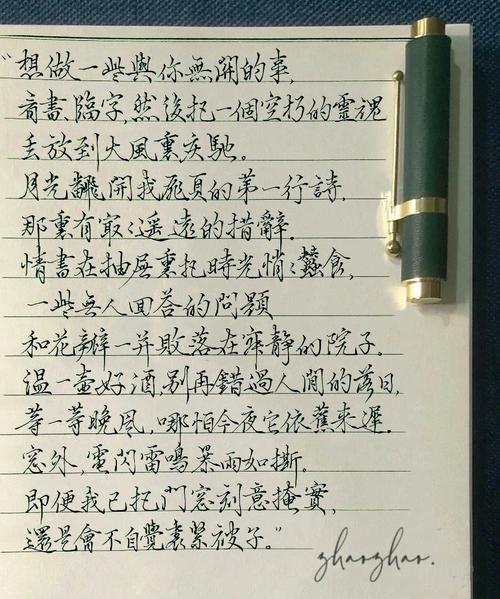 "想做一些與你無關的事,
音書,臨字,然後把一個空朽的靈魂
丟放到大風裏疾馳。
月光翻開我扉頁的第一行詩,
那裏有最遥遠的措辭。
情書在抽屉裏把時光悄悄蠶食,
一些無人回答的問題
和花瓣一并敗落在寂靜的院子。
温一壺好酒,别再錯過人間的落日,
等一等晚风,哪怕今夜它依舊來遲。
窓外,電閃雷鳴暴雨如撕。
即便我已把門窓刻意掩實,
還是會不自覺裹緊被子。"
zhaozhao.